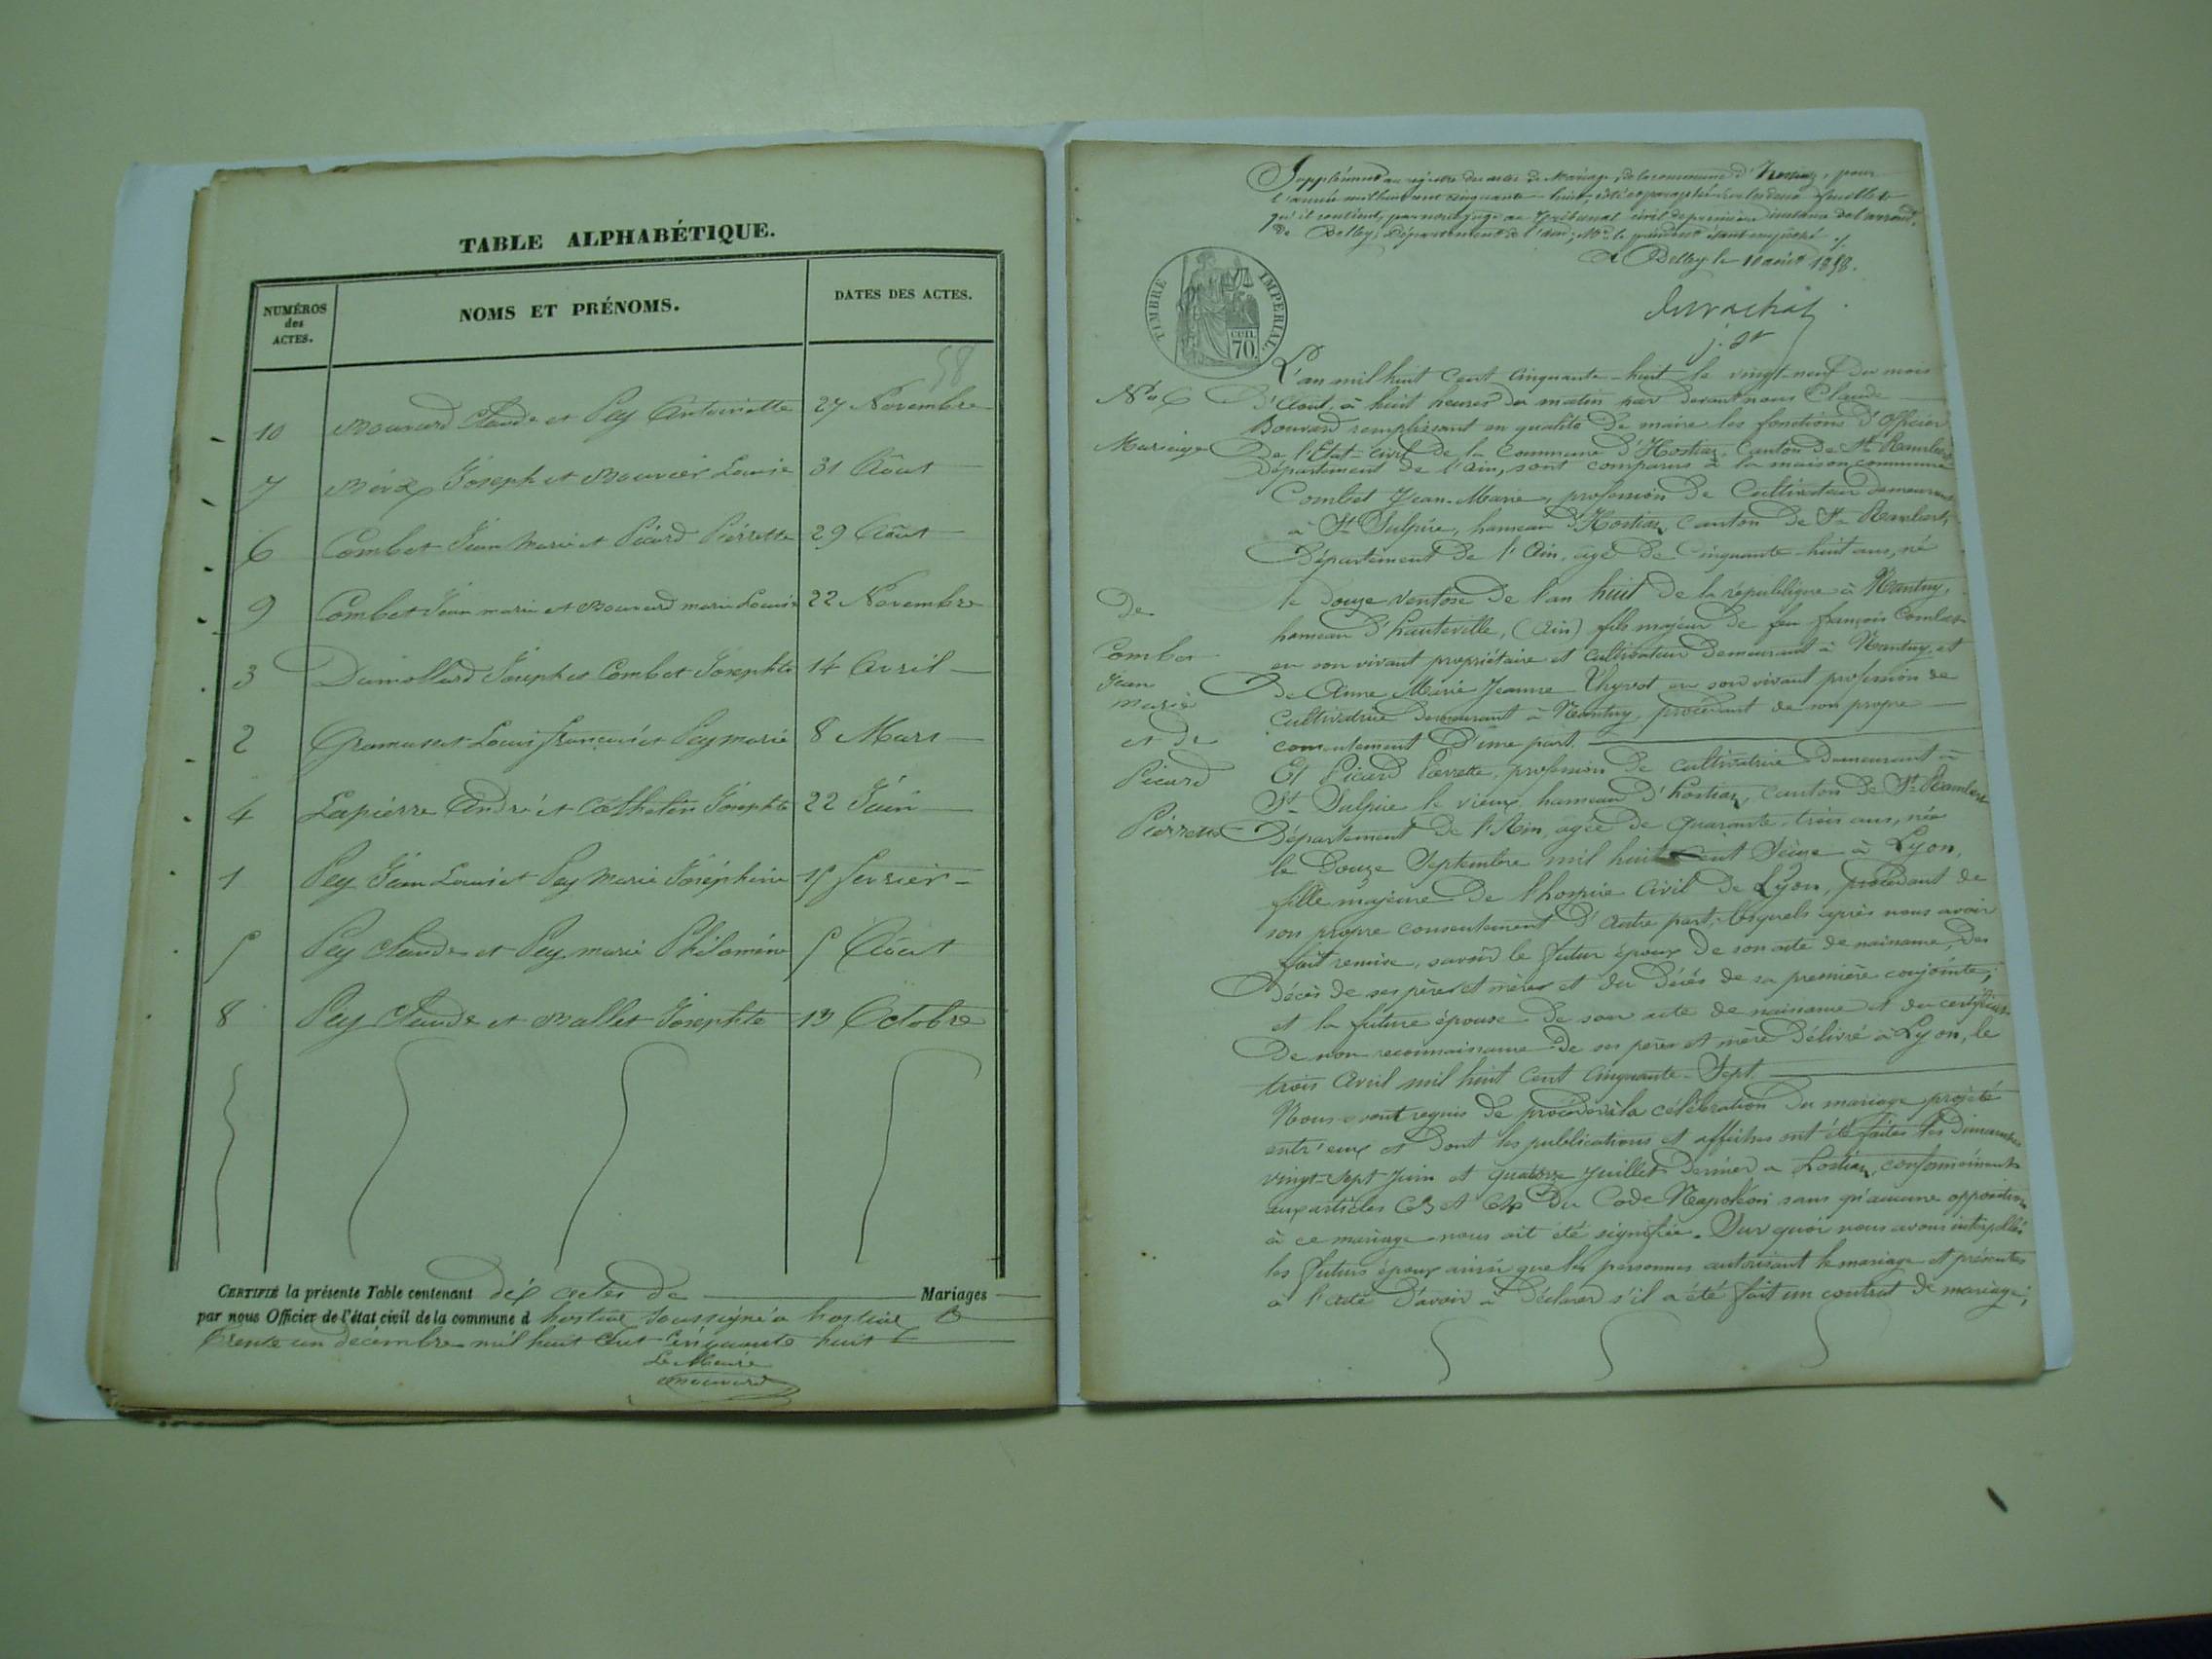 TABLE ALPHABÉTIQUE.
NUMÉROS des ACTES.
NOMS ET PRÉNOMS.
DATES DES ACTES.
58
10 Bouvard Claude et Pey Antoinette 27 Novembre
7 Joseph et Bouvier Louise 31 Août
6 Combet Jean Marie et Picard Pierrette 29 Août
9 Combet Jean marie et Bouvard marie Louise 22 Novembre
3 Dumollard Joseph et Combet Josephte 14 Avril
2 Gramusset Louis françois et Pey marie 8 Mars
4 Lapierre André et Cathelin Josephte 22 Juin
1 Pey Jean Louis et Pey Marie Joséphine 15 fevrier
5 Pey Claude et Pey marie Philomène 5 Août
8 Pey Claude et Ballet Josephte 13 Octobre
CERTIFIÉ la présente Table contenant dix actes de Mariages
par nous Officier de l'état civil de la commune d hostiaz soussigné à hostiaz
trente un décembre mil huit Cent Cinquante huit
Le Maire
Bouvard
Supplément au registre des actes de Mariage, de la commune d'Hostiaz, pour
l'année mil huit cent cinquante huit, coté et paraphé sur les deux feuillets
qu'il contient, par nous juge au Tribunal civil de première instance de l'arrond.t
de Belley, Département de l'ain, Mr le président étant empêché
A Belley le 11 août 1858.
TIMBRE IMPERIAL
CENT. 70
L'an mil huit Cent Cinquante-huit le vingt-neuf du mois
N.º 6
D'Août, à huit heures du matin par devant nous Claude
Bouvard remplissant en qualité de maire les fonctions d'Officier
Mariage
De l'Etat-civil de la Commune d'Hostiaz, Canton de St Rambert
Département de l'Ain, sont comparus à la maison commune
Combet Jean-Marie, profession de Cultivateur demeurant
à St Sulpice, hameau d'Hostiaz, Canton de St Rambert,
Département de l'Ain, agé de Cinquante-huit ans, né
De
le Douze Ventose de l'an huit de la république à Nantuy,
hameau d'hauteville, (Ain) fils majeur de feu françois Combet
Combet
en son vivant propriétaire et Cultivateur demeurant à Nantuy, et
Jean
De Anne Marie Jeanne en son vivant profession de
marie
Cultivatrice demeurant à Nantuy, procédant de son propre
et de
consentement D'une part.
Picard
Et Picard Pierrette, profession de cultivatrice demeurant à
St Sulpice le vieux, hameau d'hostiaz, canton de St Rambert
Pierrette
Département de l'Ain, agée de quarante-trois ans, née
le Douze Septembre mil huit cent Seize à Lyon,
fille majeure de l'hospice Civil de Lyon, procédant de
son propre consentement D'autre part; lesquels après nous avoir
fait remise, savoir le futur époux de son acte de naissance, Des
Décès de ses père et mère et du Décès de sa première conjointe;
et la future épouse de son acte de naissance et du certificat
De non reconnaissance de ses père et mère Délivré à Lyon, le
trois Avril mil huit Cent Cinquante-Sept.
Nous ont requis de procéder à la célébration du mariage projeté
entr'eux et Dont les publications et affiches ont été faites les Dimanches
vingt-sept Juin et quatorze Juillet dernier a hostiaz, conformément
aux articles 63 et 64 Du Code Napoléon sans qu'aucune opposition
à ce mariage nous ait été signifiée. Sur quoi nous avons interpellé
les futurs époux ainsi que les personnes autorisant le mariage et présentes
à l'acte D'avoir à Déclarer s'il a été fait un contrat de mariage;